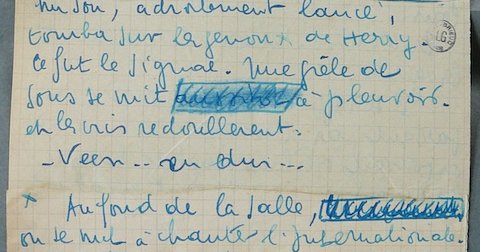 un sou, adroitement lancé,
tomba sur les genoux de Henry.
Ce fut le signal. Une grêle de
sous se mit à pleuvoir.
et les cris redoublèrent.
_ Veen... en dui...
x Au fond de la salle,
on se mit à chanter l'Internationale